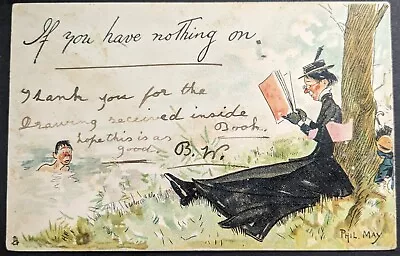 If you have nothing on.
Thank you for the
Drawing received inside
Book.
hope this is as
good.
B. W.
PHIL MAY